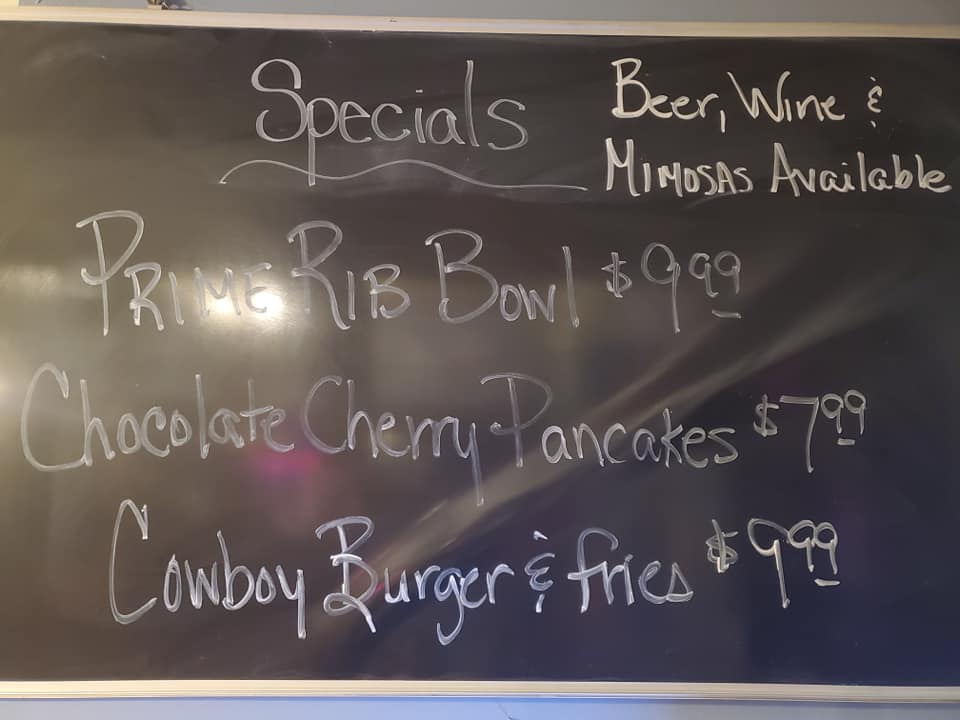 Specials
Beer, Wine &
Mimosas Available
Prime Rib Bowl $9.99
Chocolate Cherry Pancakes $7.99
Cowboy Burger & fries $9.99